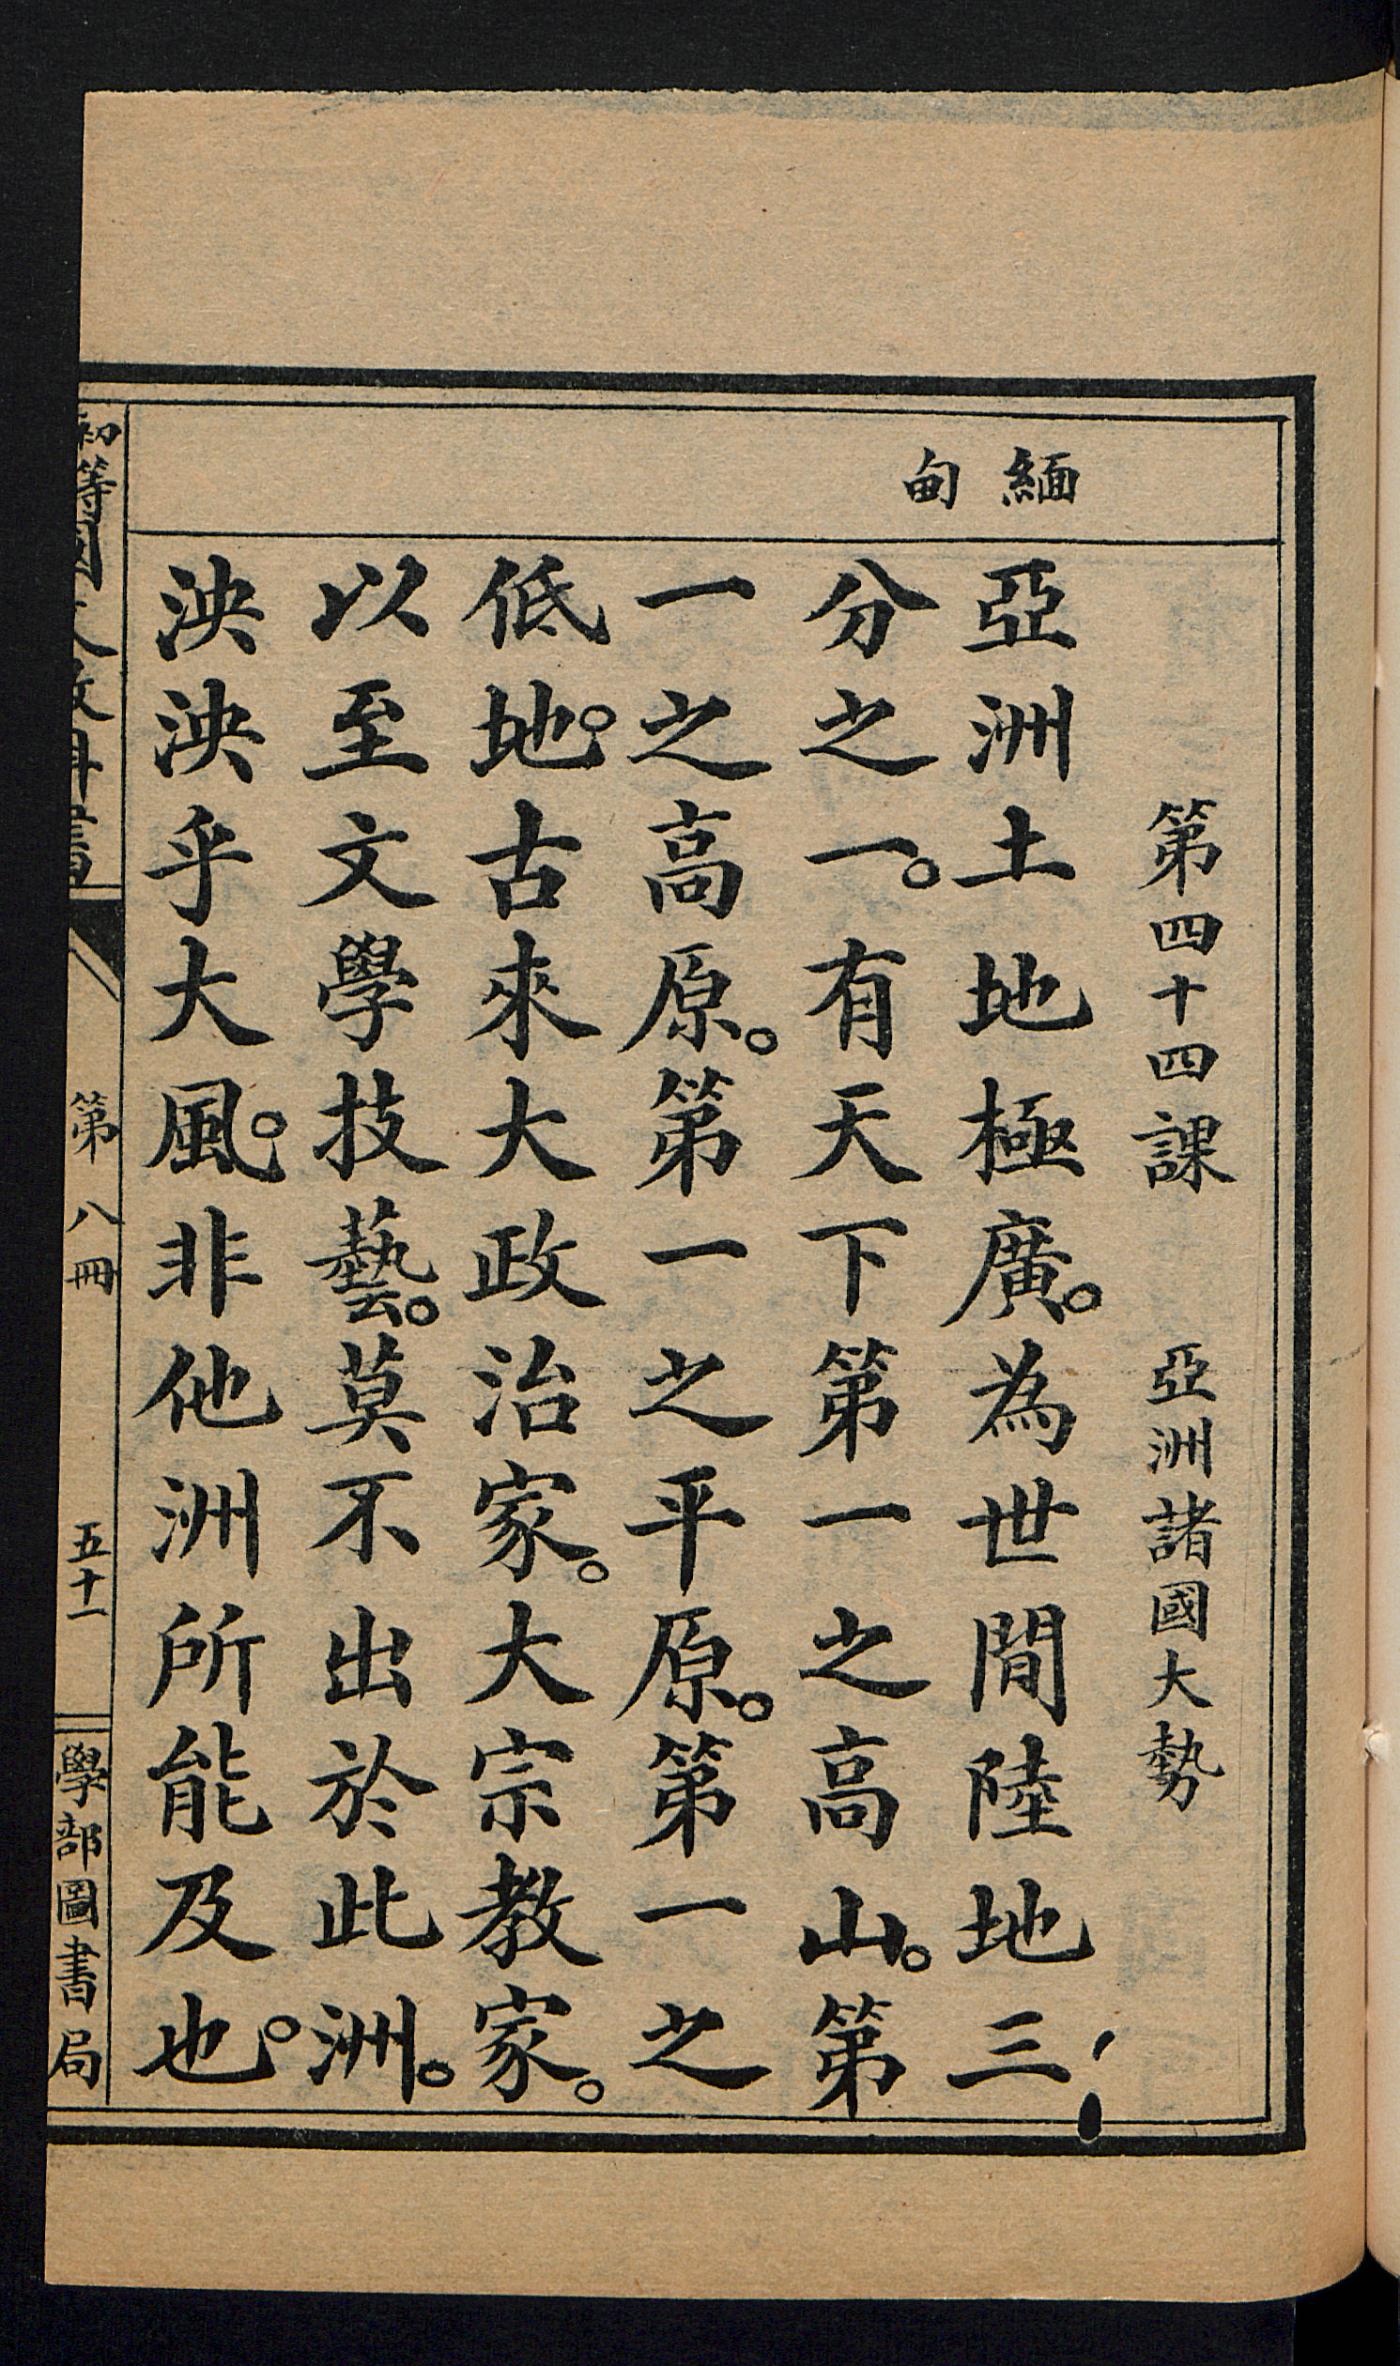 緬甸
第四十四課　亞洲諸國大勢
亞洲土地極廣。為世間陸地三
分之一。有天下第一之高山。第
一之高原。第一之平原。第一之
低地。古來大政治家。大宗教家。
以至文學技藝。莫不出於此洲。
泱泱乎大風。非他洲所能及也。
初等國文教科書　第八冊　五十一　學部圖書局